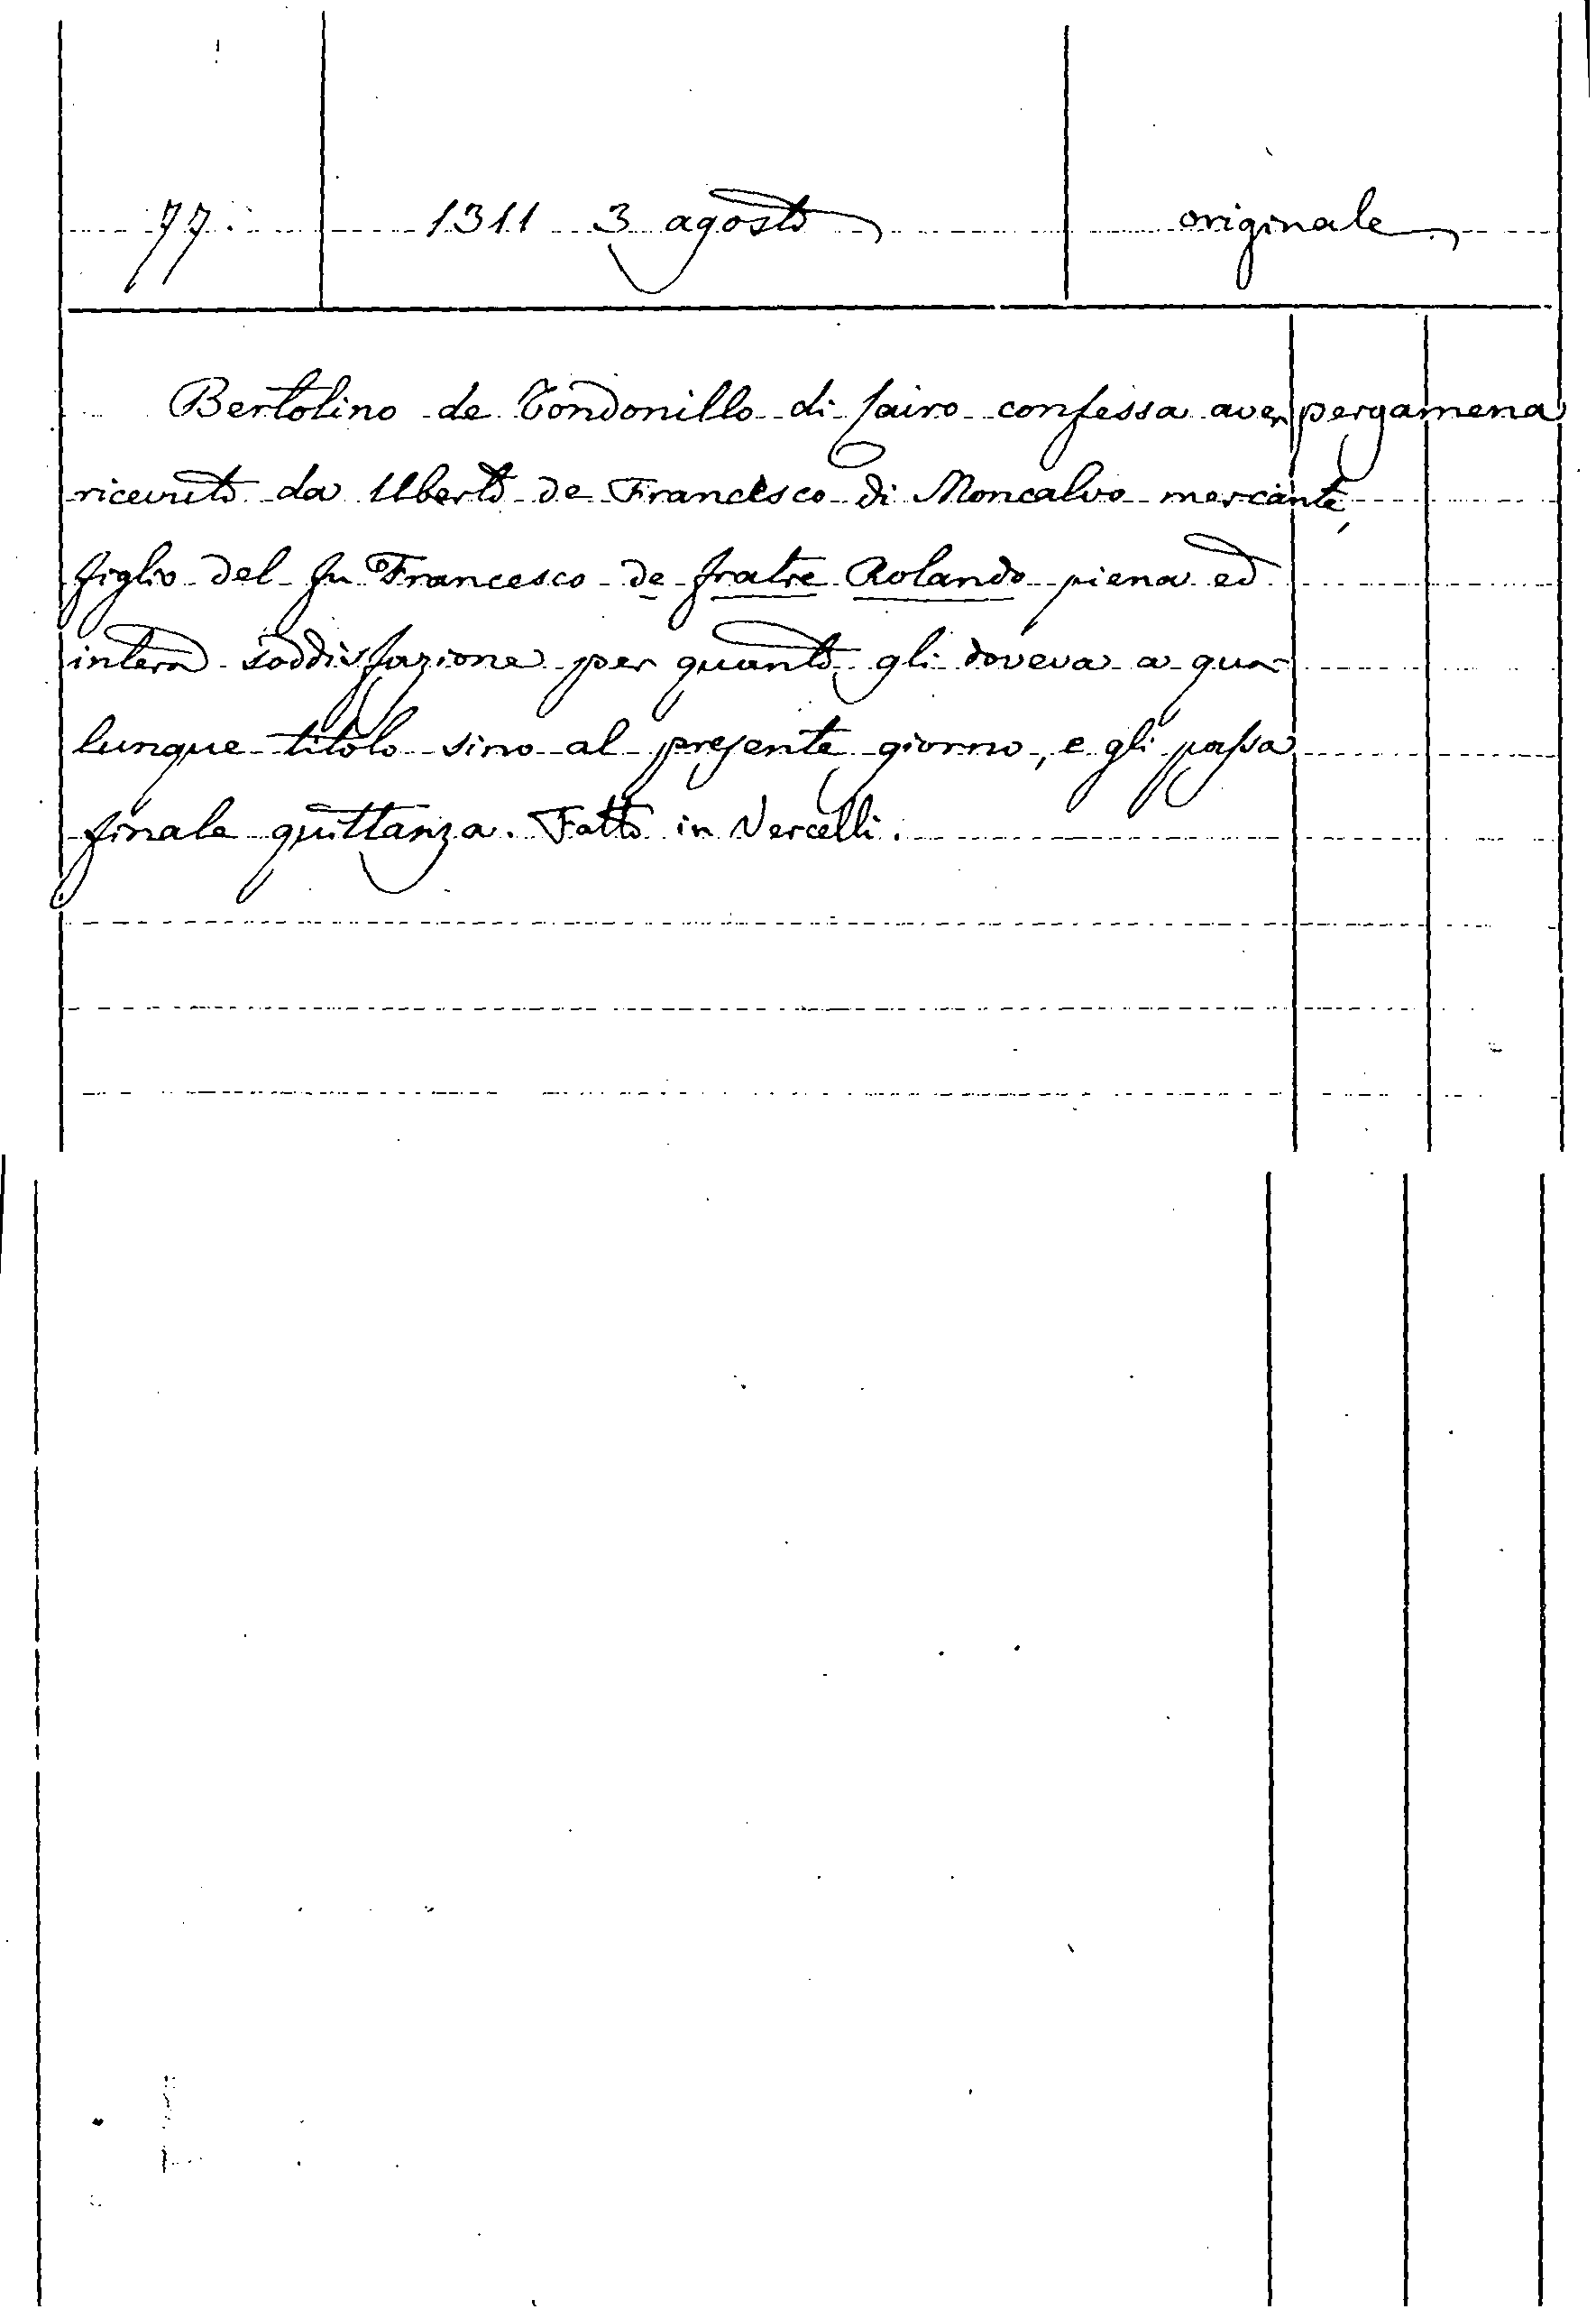 77. 1311 3 agosto originale
Bertolino de Tondonillo di Cairo confessa aver pergamena
ricevuto da Uberto de Francesco di Moncalvo mercante,
figlio del fu Francesco de fratre Rolando piena ed
intera soddisfazione per quanto gli doveva a qua-
lunque titolo sino al presente giorno, e gli passa
finale quittanza. Fatto in Vercelli.